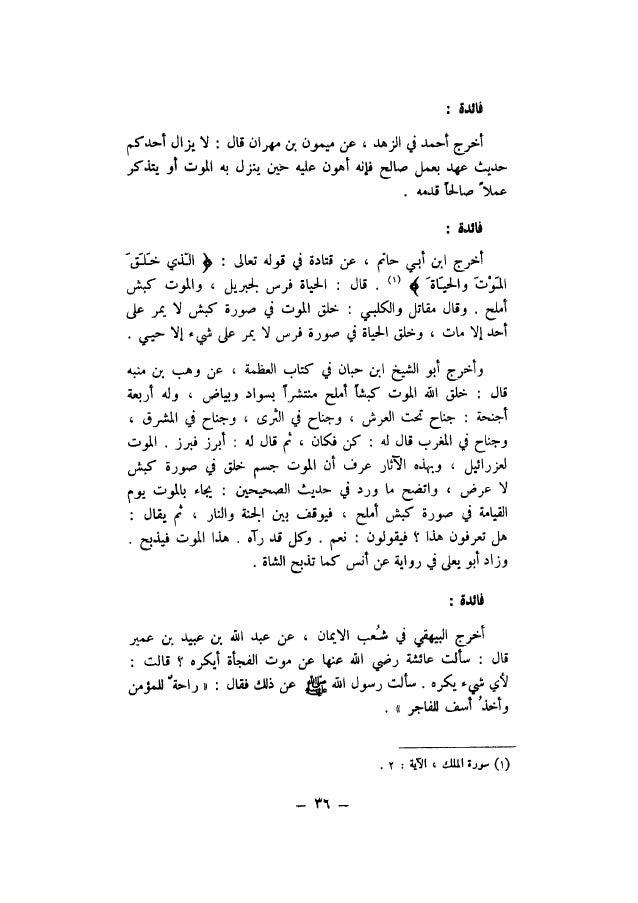 فائدة :
أخرج أحمد في الزهد ، عن ميمون بن مهران قال : لا يزال أحدكم
حديث عهد بعمل صالح فإنه أهون عليه حين ينزل به الموت أو يتذكر
عملاً صالحاً قدمه .
فائدة :
أخرج ابن أبي حاتم ، عن قتادة في قوله تعالى : ﴿ الّذي خَلَقَ
المَوْتَ والحيَاةَ ﴾ (١) . قال : الحياة فرس لجبريل ، والموت كبش
أملح . وقال مقاتل والكلبي : خلق الموت في صورة كبش لا يمر على
أحد إلا مات ، وخلق الحياة في صورة فرس لا يمر على شيء إلا حيي .
وأخرج أبو الشيخ ابن حبان في كتاب العظمة ، عن وهب بن منبه
قال : خلق الله الموت كبشاً أملح منتشراً بسواد وبياض ، وله أربعة
أجنحة : جناح تحت العرش ، وجناح في الثرى ، وجناح في المشرق ،
وجناح في المغرب قال له : كن فكان ، ثم قال له : أبرز فبرز . الموت
لعزرائيل ، وبهذه الآثار عرف أن الموت جسم خلق في صورة كبش
لا عرض ، واتضح ما ورد في حديث الصحيحين : يجاء بالموت يوم
القيامة في صورة كبش أملح ، فيوقف بين الجنة والنار ، ثم يقال :
هل تعرفون هذا ؟ فيقولون : نعم . وكل قد رآه . هذا الموت فيذبح .
وزاد أبو يعلى في رواية عن أنس كما تذبح الشاة .
فائدة :
أخرج البيهقي في شُعب الايمان ، عن عبد الله بن عبيد بن عمير
قال : سألت عائشة رضي الله عنها عن موت الفجأة أيكره ؟ قالت :
لأي شيء يكره . سألت رسول الله ﷺ عن ذلك فقال : « راحةٌ للمؤمن
وأخذُ أسف للفاجر » .
(١) سورة الملك ، الآية : ٢ .
– ٣٦ –